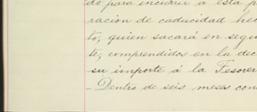 do para incluir á esta p
ración de caducidad hec
to, quien sacará en segui
te, comprendidos en la dec
su importe á la Tesorer
Dentro de seis meses con